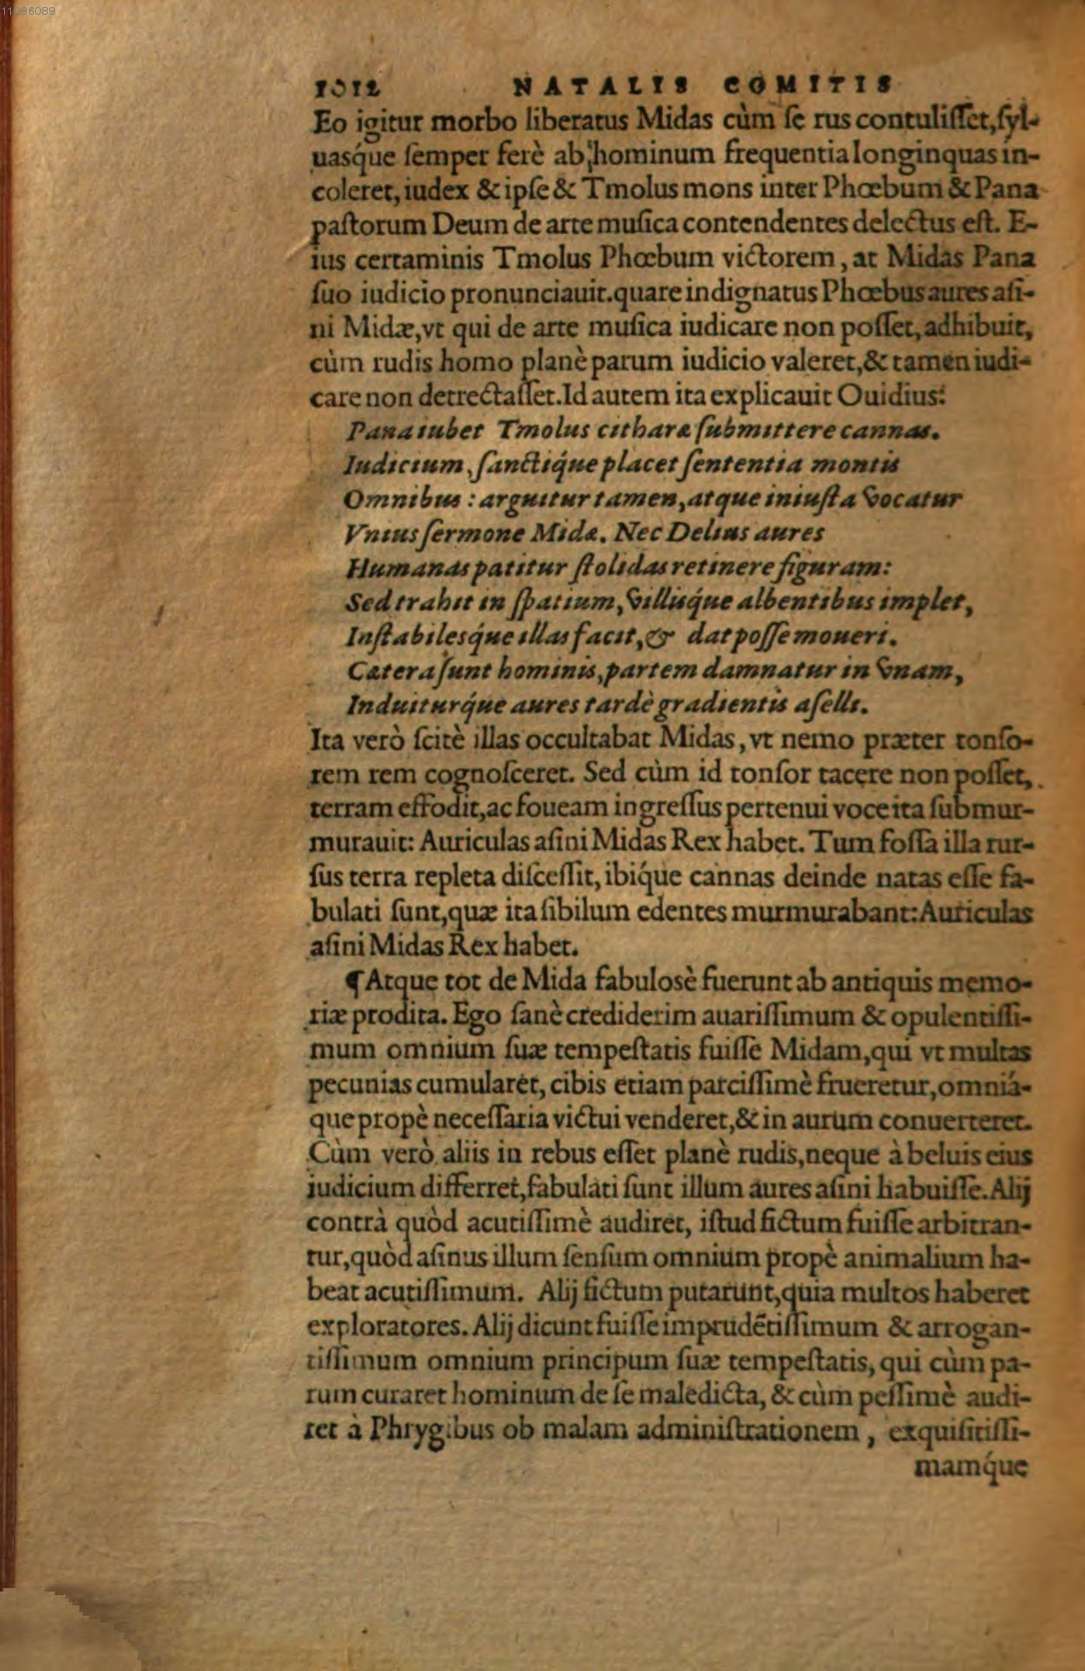 11286089
1012 NATALIS COMITIS
Eo igitur morbo liberatus Midas cùm ſe rus contuliſſet, ſyl-
uasq́ue ſemper ferè ab hominum frequentia longinquas in-
coleret, iudex & ipſe & Tmolus mons inter Phœbum & Pana
paſtorum Deum de arte muſica contendentes delectus eſt. E-
ius certaminis Tmolus Phœbum victorem, at Midas Pana
ſuo iudicio pronunciauit. quare indignatus Phœbus aures aſi-
ni Midæ, vt qui de arte muſica iudicare non poſſet, adhibuit,
cùm rudis homo planè parum iudicio valeret, & tamen iudi-
care non detrectaſſet. Id autem ita explicauit Ouidius:
Pana iubet Tmolus citharæ ſubmittere cannas.
Iudicium, ſanctiq́ue placet ſententia montis
Omnibus: arguitur tamen, atque iniuſta vocatur
Vnius ſermone Midæ. Nec Delius aures
Humanas patitur ſtolidas retinere figuram:
Sed trahit in ſpatium, villisq́ue albentibus implet,
Inſtabilesq́ue illas facit, & dat poſſe moueri.
Cætera ſunt hominis, partem damnatur in vnam,
Induiturq́ue aures tardè gradientis aſelli.
Ita verò ſcitè illas occultabat Midas, vt nemo præter tonſo-
rem rem cognoſceret. Sed cùm id tonſor tacere non poſſet,
terram effodit, ac foueam ingreſſus pertenui voce ita ſubmur-
murauit: Auriculas aſini Midas Rex habet. Tum foſſa illa rur-
ſus terra repleta diſceſſit, ibiq́ue cannas deinde natas eſſe fa-
bulati ſunt, quæ ita ſibilum edentes murmurabant: Auriculas
aſini Midas Rex habet.
¶ Atque tot de Mida fabuloſè fuerunt ab antiquis memo-
riæ prodita. Ego ſanè crediderim auariſſimum & opulentiſſi-
mum omnium ſuæ tempeſtatis fuiſſe Midam, qui vt multas
pecunias cumularet, cibis etiam parciſſimè frueretur, omniá-
que propè neceſſaria victui venderet, & in aurum conuerteret.
Cùm verò aliis in rebus eſſet planè rudis, neque à beluis eius
iudicium differret, fabulati ſunt illum aures aſini habuiſſe. Alij
contrà quòd acutiſſimè audiret, iſtud fictum fuiſſe arbitran-
tur, quòd aſinus illum ſenſum omnium propè animalium ha-
beat acutiſſimum. Alij fictum putarunt, quia multos haberet
exploratores. Alij dicunt fuiſſe imprudẽtiſſimum & arrogan-
tiſſimum omnium principum ſuæ tempeſtatis, qui cùm pa-
rum curaret hominum de ſe maledicta, & cùm peſſimè audi-
ret à Phrygibus ob malam adminiſtrationem, exquiſitiſſi-
mamq́ue